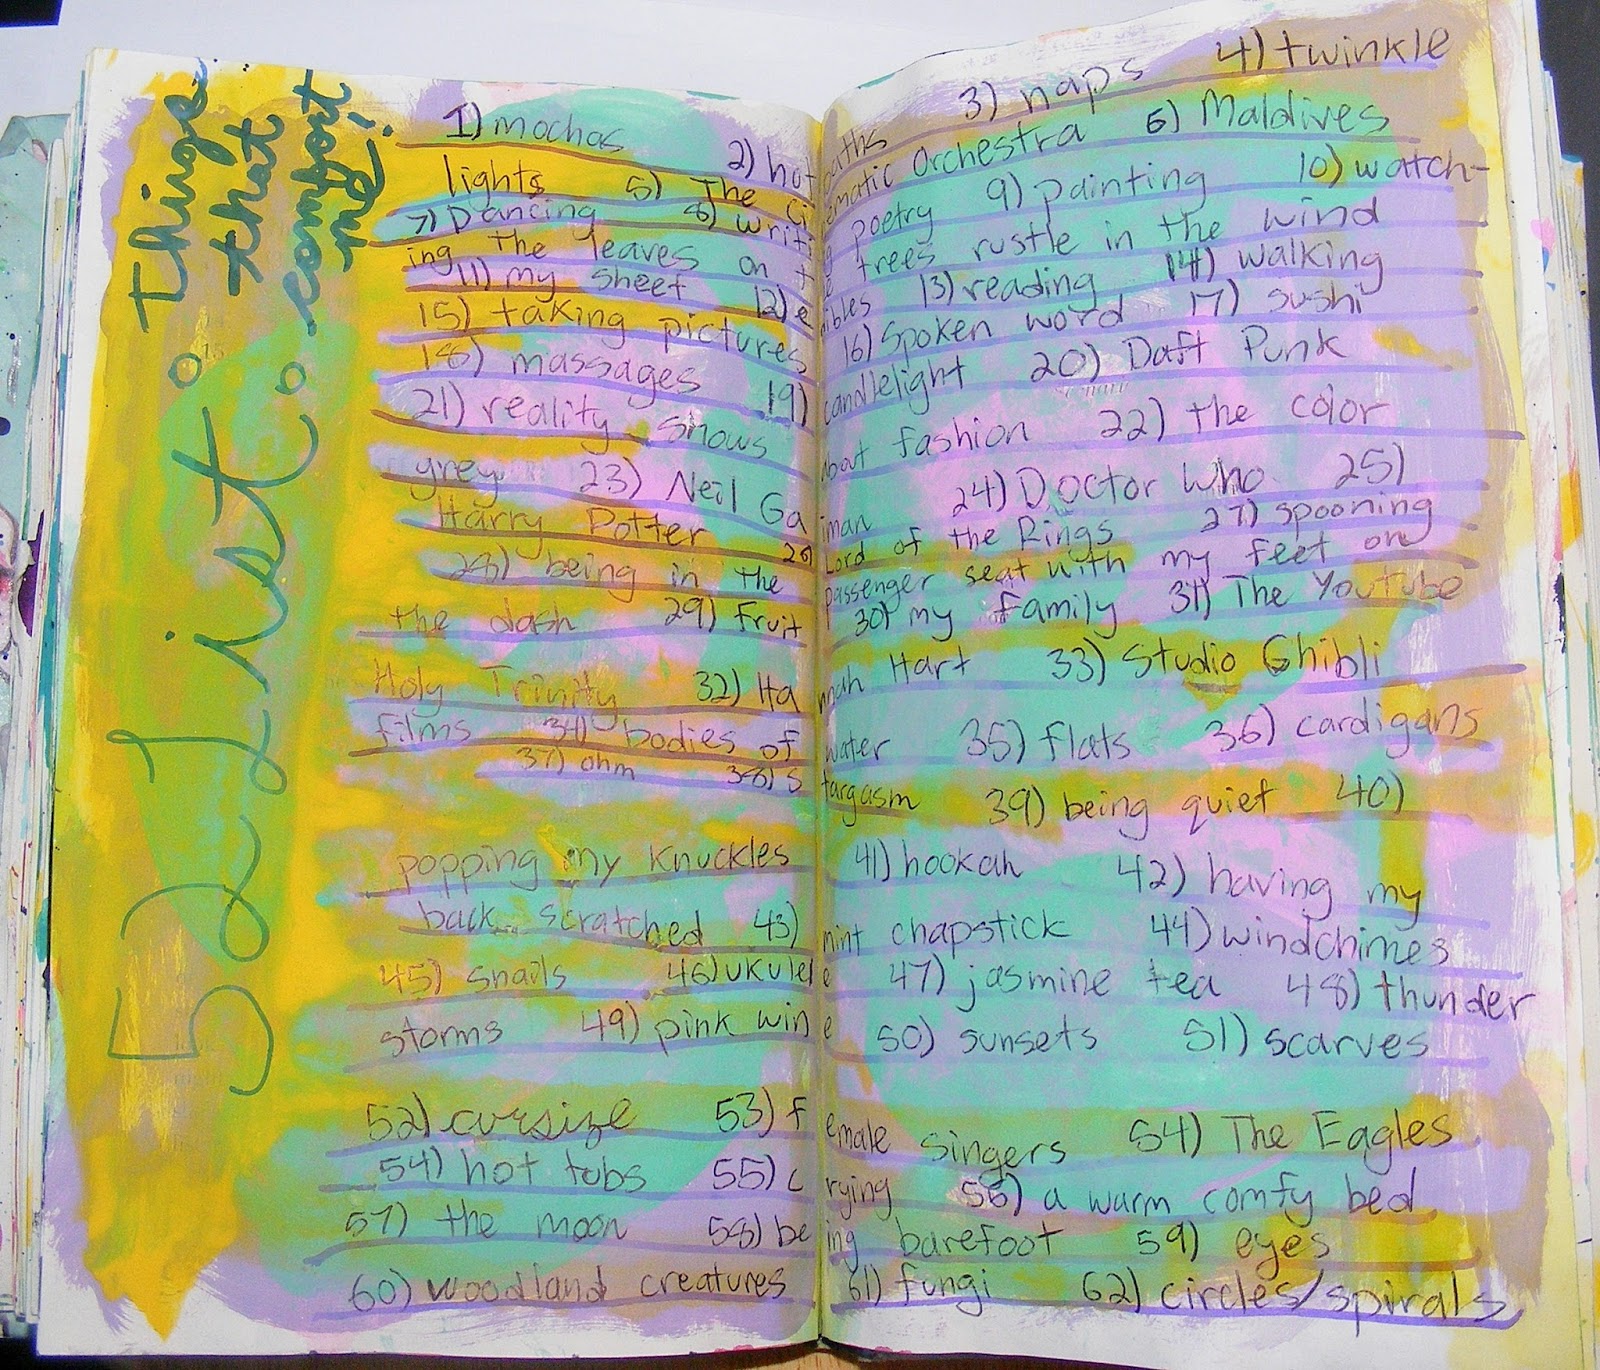 52 List:
Things
that
comfort
me!
1) mochas 2) hot baths 3) naps 4) twinkle
lights 5) The Cinematic Orchestra 6) Maldives
7) Dancing 8) writing poetry 9) painting 10) watch-
ing the leaves on the trees rustle in the wind
11) my sheet 12) edibles 13) reading 14) walking
15) taking pictures 16) spoken word 17) sushi
18) massages 19) candlelight 20) Daft Punk
21) reality shows about fashion 22) the color
grey 23) Neil Gaiman 24) Doctor Who 25)
Harry Potter 26) Lord of the Rings 27) spooning
28) being in the passenger seat with my feet on
the dash 29) fruit 30) my family 31) The Youtube
Holy Trinity 32) Hannah Hart 33) Studio Ghibli
films 34) bodies of water 35) flats 36) cardigans
37) ohm 38) stargasm 39) being quiet 40)
popping my knuckles 41) hookah 42) having my
back scratched 43) mint chapstick 44) windchimes
45) snails 46) ukulele 47) jasmine tea 48) thunder
storms 49) pink wine 50) sunsets 51) scarves
52) cursize 53) female singers 54) The Eagles
54) hot tubs 55) crying 56) a warm comfy bed
57) the moon 58) being barefoot 59) eyes
60) woodland creatures 61) fungi 62) circles/spirals